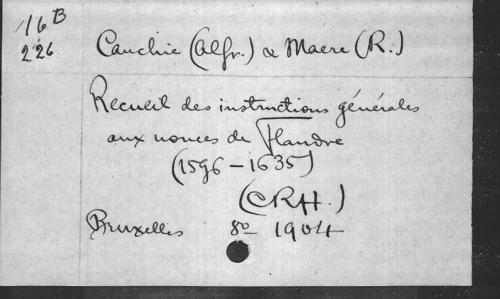 16 B
226
Cauchie (Alfr.) & Maere (R.)
Recueil des instructions générales
aux nonces de Flandre
(1596-1635)
(CRH.)
Bruxelles 8º 1904